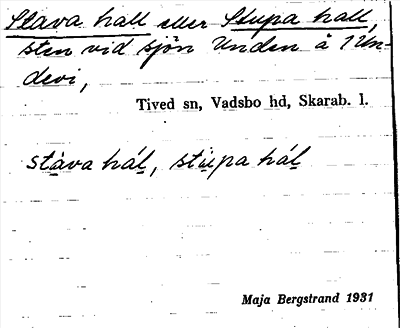 Stava hall eller Stupa hall,
sten vid sjön Unden å 1 Un-
devi,
Tived sn, Vadsbo hd, Skarab. l.
stàva háḻ, stùpa háḻ
Maja Bergstrand 1931